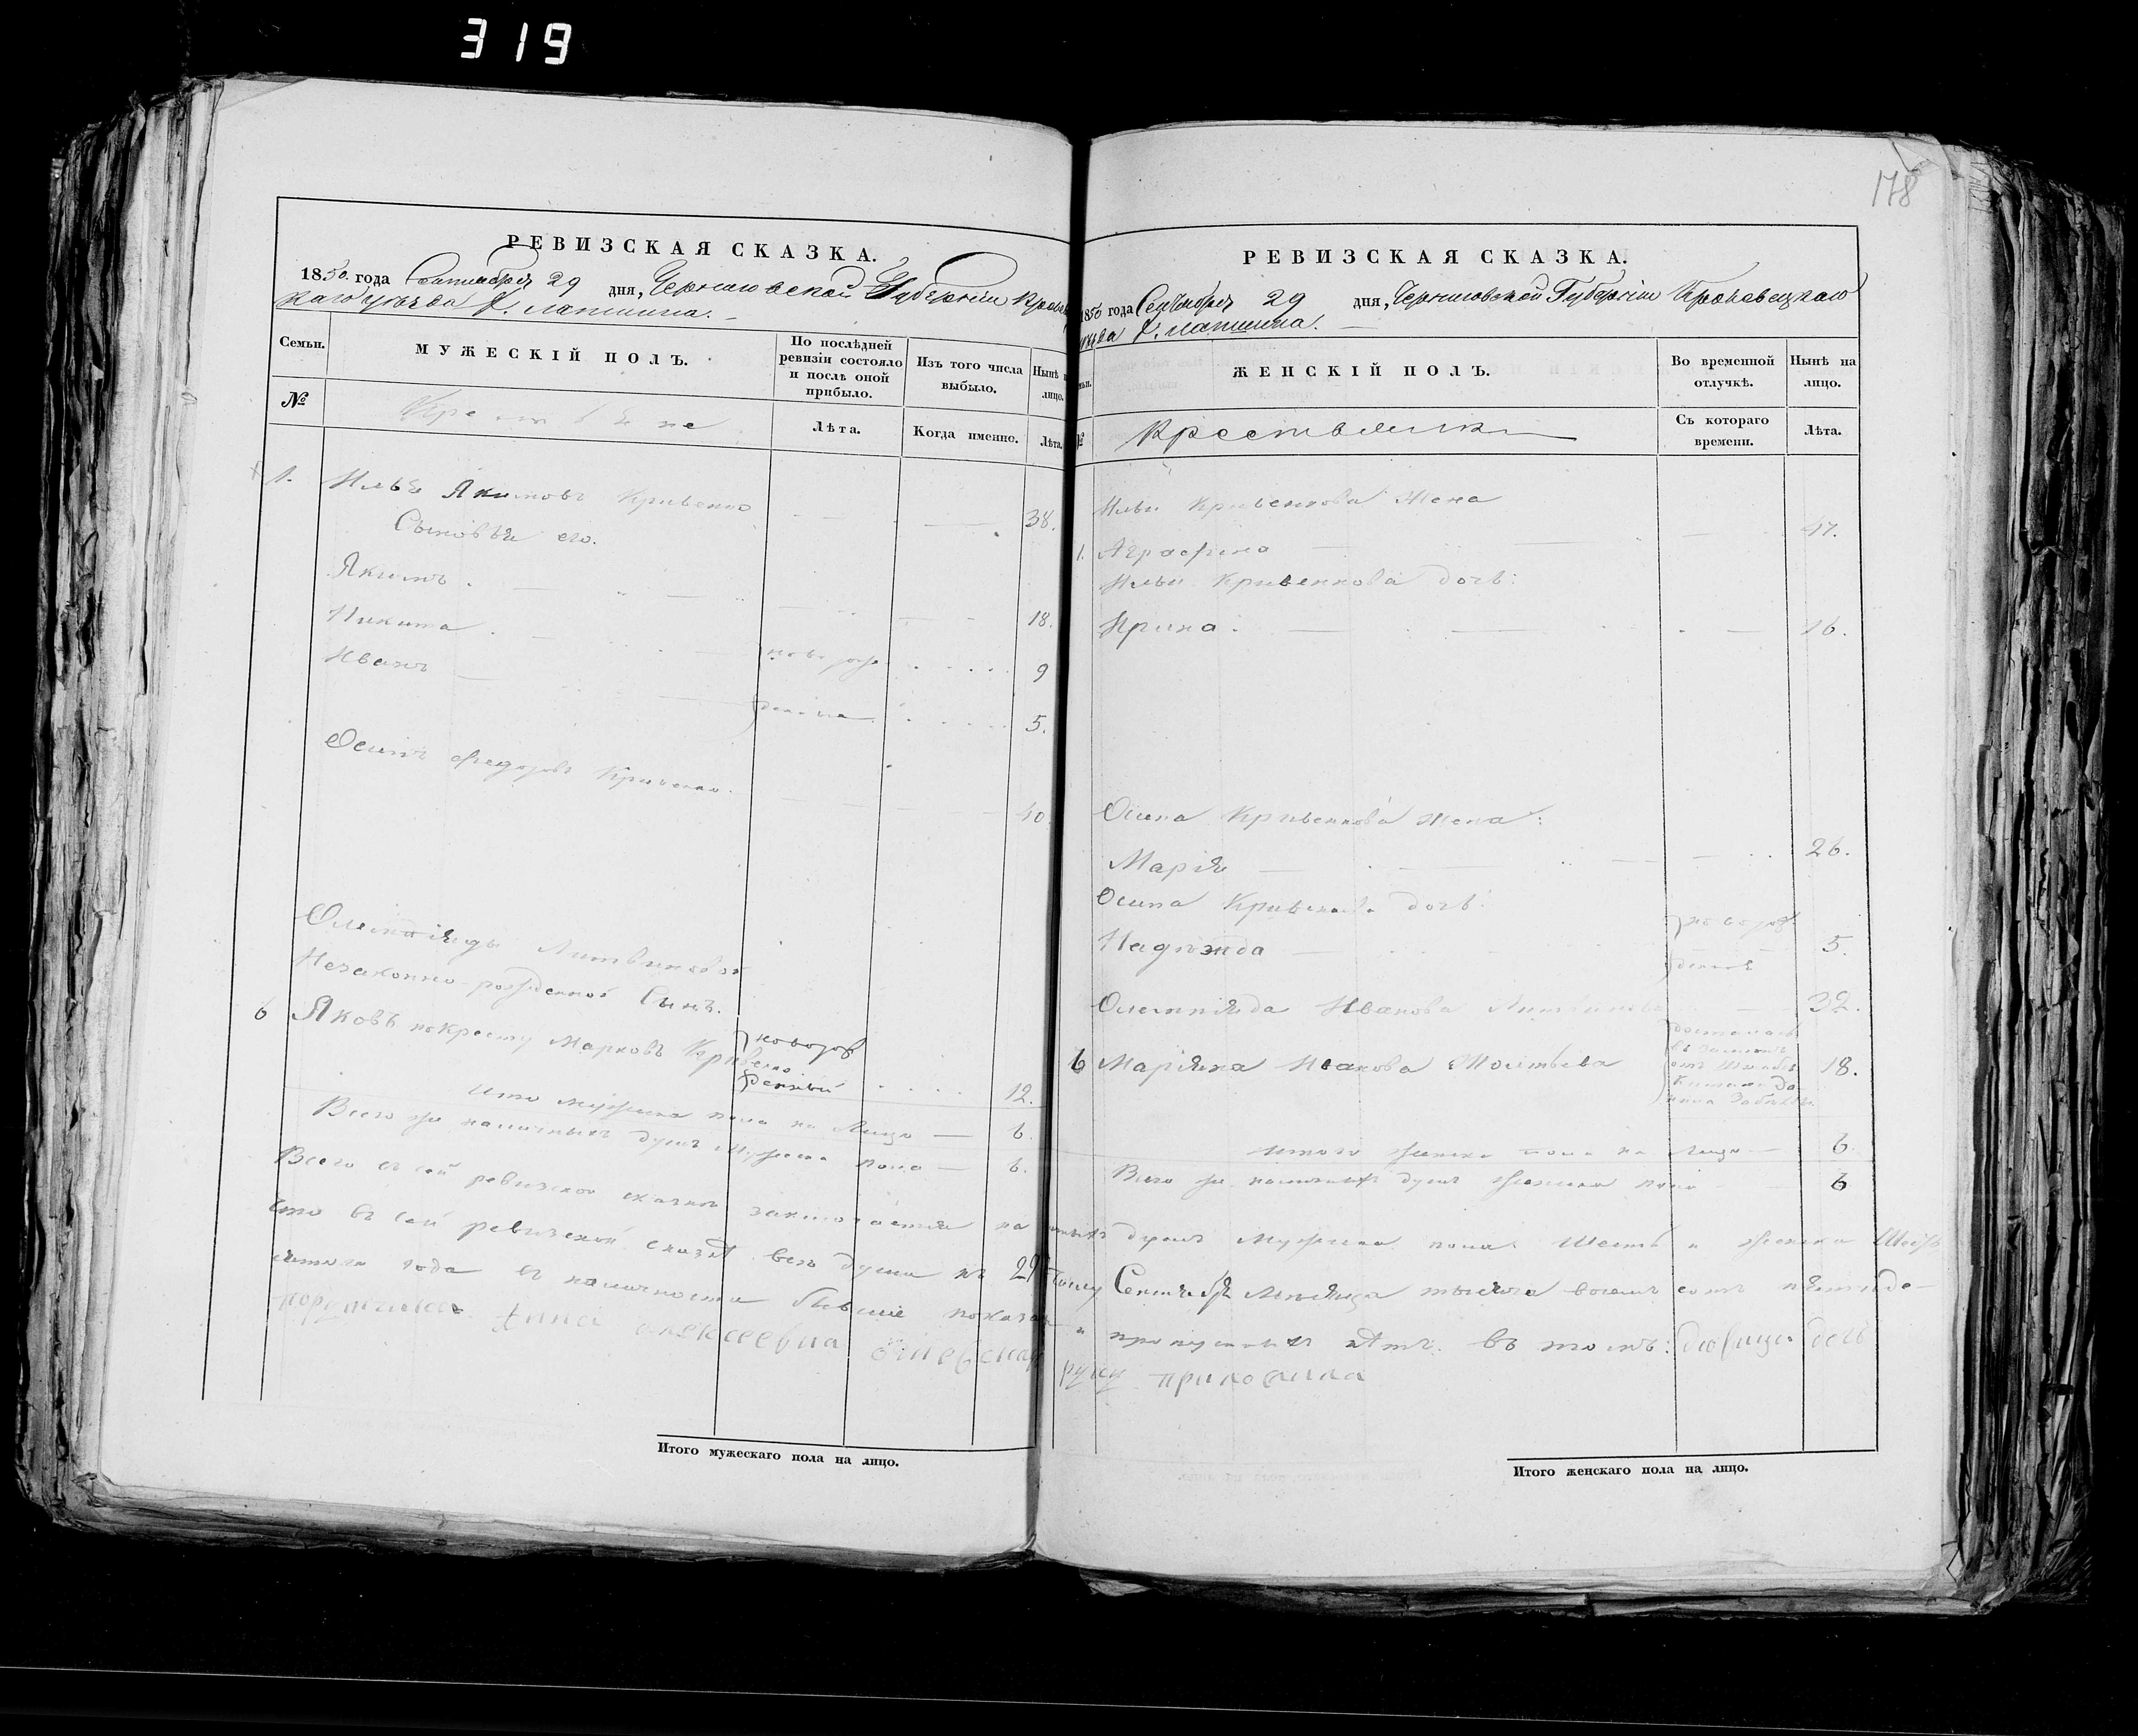 319
178
РЕВИЗСКАЯ СКАЗКА.
1850. года Сентября 29 дня, Черниговской Губерніи
каго уѣзда
Семьи.
МУЖЕСКІЙ ПОЛЪ.
По послѣдней ревизіи состояло и послѣ оной прибыло.
Изъ того числа выбыло.
Нынѣ на лицо.
№
Лѣта.
Когда именно.
Лѣта.
1. Илья Якимовъ Кривенко 38.
Сыновья его.
Якимъ. 18.
Никита новорож 9
Иванъ денные 5.
Осипъ Федоровъ Кривенко. 40
Олемпіяды Литвиновой
Незаконно-рожденной Сынъ.
6 Яковъ по Кресту Марковъ Кривенко новорож
денный 12.
Итого мужеска пола на Лицо — 6.
Всего же наличныхъ душъ мужеска пола — 6.
РЕВИЗСКАЯ СКАЗКА.
1850 года Сентября 29 дня, Черниговской Губерніи Кролевецкаго
ЖЕНСКІЙ ПОЛЪ.
Во временной отлучкѣ.
Нынѣ на лицо.
№
Крестьянки
Съ котораго времени.
Лѣта.
Ильи Кривенкова Жена
1. Аграфена 47.
Ильи Кривенкова дочь:
Ирина. 16.
Осипа Кривенкова жена:
Марія 26.
Осипа Кривенкова дочь:
новорож
Надѣжда 5.
денная
Олемпіяда Иванова Литвинова 32.
6 Маріяна Иванова 18.
досталась
отъ
итого женска пола на лицо — 6.
Всего же наличныхъ душъ женска пола 6
Всего въ сей ревизской сказкѣ заключается наличныхъ душъ Мужеска пола Шесть и женска Шесть
Что въ сей ревизской сказкѣ всѣ души къ 29 числу Сентября Мѣсяца тысяча восемъ сотъ пятиде-
сятого года въ наличности бывшіе показаны и пропущенныхъ нѣтъ. Въ томъ:
Анна Алексеевна руку приложила
Итого мужескаго пола на лицо.
Итого женскаго пола на лицо.